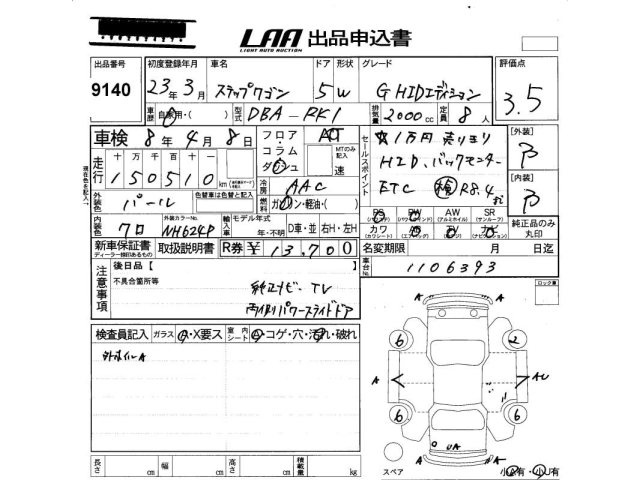 LAA 出品申込書
LIGHT AUTO AUCTION
出品番号 初度登録年月 車名 ドア 形状 グレード 評価点
9140 23年3月 ステップワゴン 5 W G HIDエディション 3.5
車歴 自家用・( ) 型式 DBA-RK1 排気量 2000cc 定員 8人
車検 8年4月8日 フロア コラム ダッシュ AT MTのみ記入 速
セールスポイント
★1万円売りきり
HID、バックモニター
ETC 検R8.4まで
[外装] B
[内装] B
走行 十万千百十
150510 km
冷房 AAC
燃料 ガソリン・軽油・( )
外装色 パール 色替車は色替と記入
PS (パワステ) PW (パワーウィンドウ) AW (アルミホイル) SR (サンルーフ)
カワ (カワシート) (エアバッグ) TV ナビ (ナビゲーション)
純正品のみ丸印
内装色 クロ 外装カラーNo. NH624P 輸入車 モデル年式 年・不明 D車・並 右H・左H
新車保証書 ディーラー検印あるもの 取扱説明書 R券 ¥13,700
名変期限 月 日迄
車台No. 1106393
注意事項
後日品【 】
不具合箇所等
純正ナビ・TV
両側パワースライドドア
ロック車
検査員記入 ガラス A・X要ス 室内シート A・コゲ・穴・汚れ・破れ
外ホイルA
A A
6 2
A A AU
6 6
UA
A A
スペア 小A有 小U有
長さ cm 幅 cm 高さ cm 積載量 kg